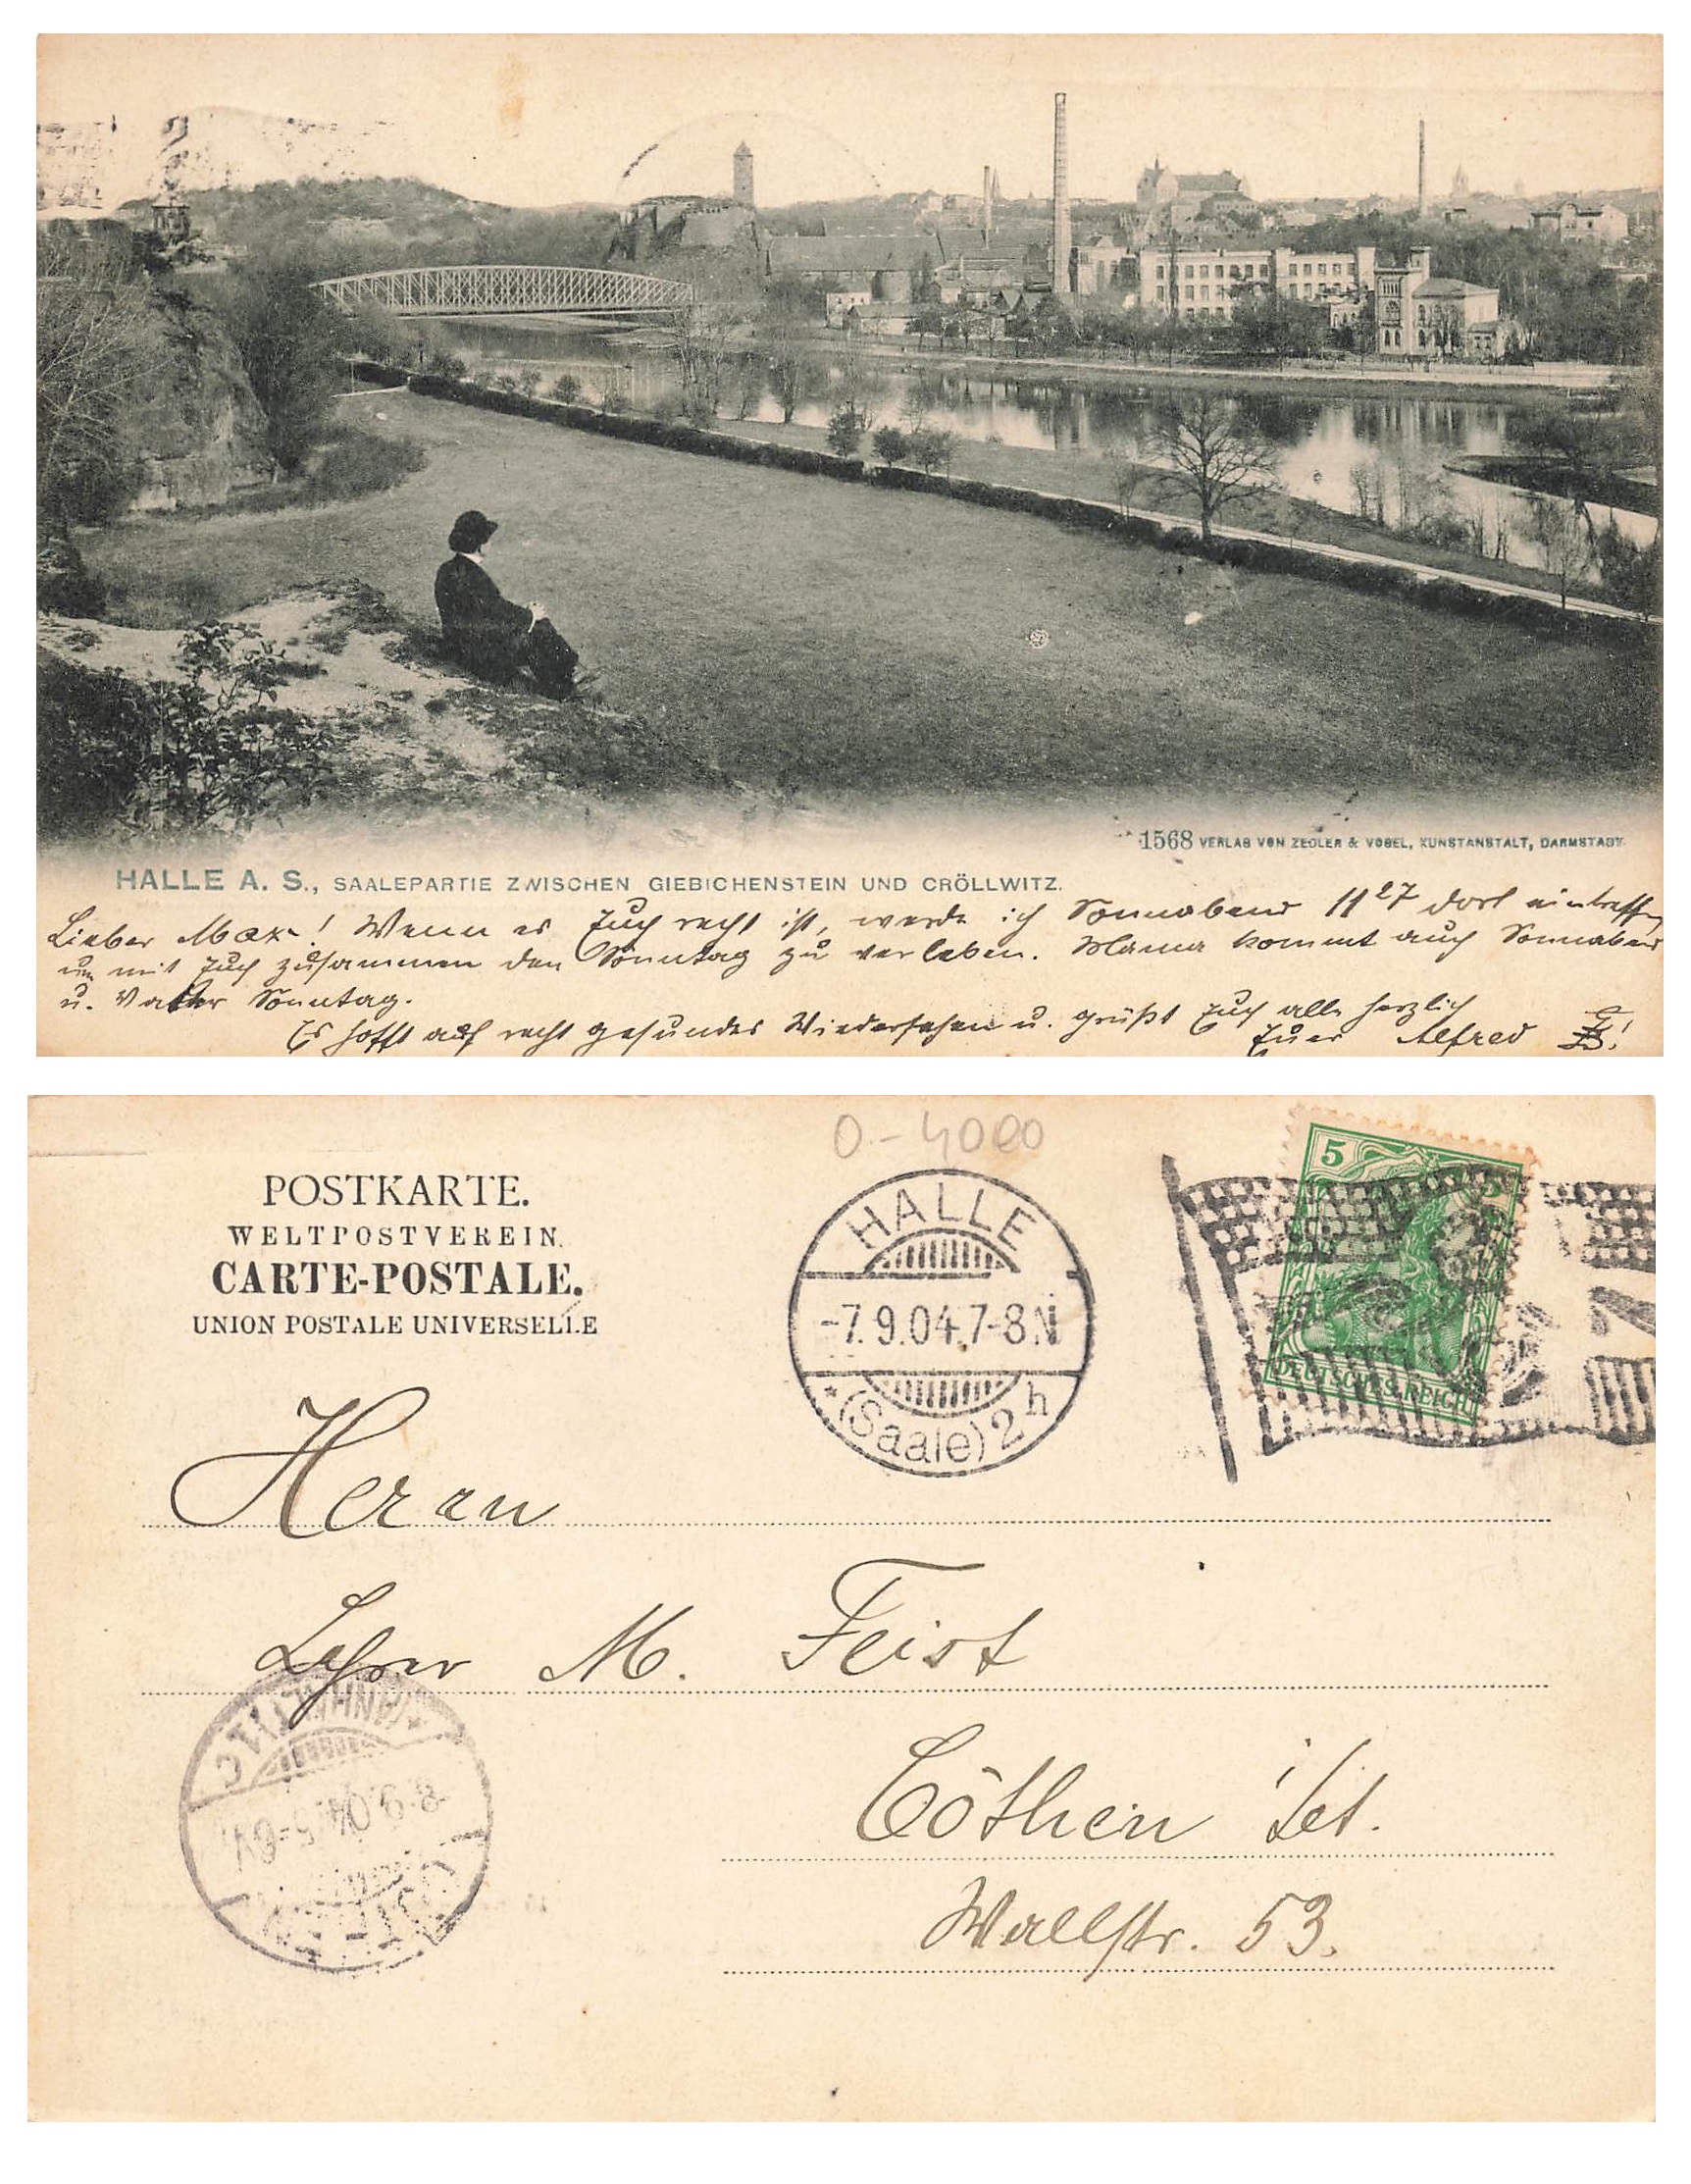 1568 VERLAG VON ZEDLER & VOGEL, KUNSTANSTALT, DARMSTADT.
HALLE A. S., SAALEPARTIE ZWISCHEN GIEBICHENSTEIN UND CRÖLLWITZ.
Lieber Max! Wenn es Euch recht ist, werde ich Sonnabend 11 27 dort eintreffen,
um mit Euch zusammen den Sonntag zu verleben. Mama kommt auch Sonnabend
u. Vater Sonntag.
Es hofft auf recht gesundes Wiedersehen u. grüßt Euch alle herzlich
Euer Alfred
0-4000
POSTKARTE.
WELTPOSTVEREIN.
CARTE-POSTALE.
UNION POSTALE UNIVERSELLE
HALLE
-7.9.04.7-8N
*(Saale)2h
5
5
DEUTSCHES REICH
Herrn
Lehrer M. Feist
Cöthen
Wallstr. 53.
(ANHALT)
8.9.04